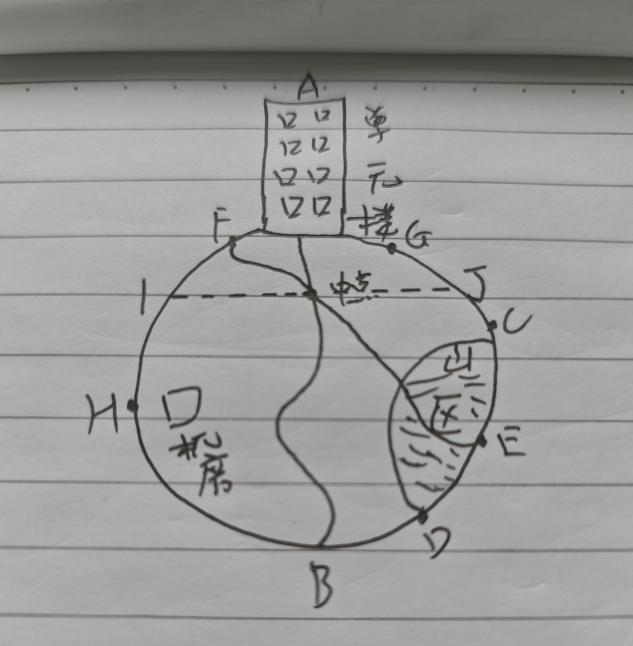 A
单
元
F
楼
G
I
中点
J
C
山
H
区
机
E
房
D
B